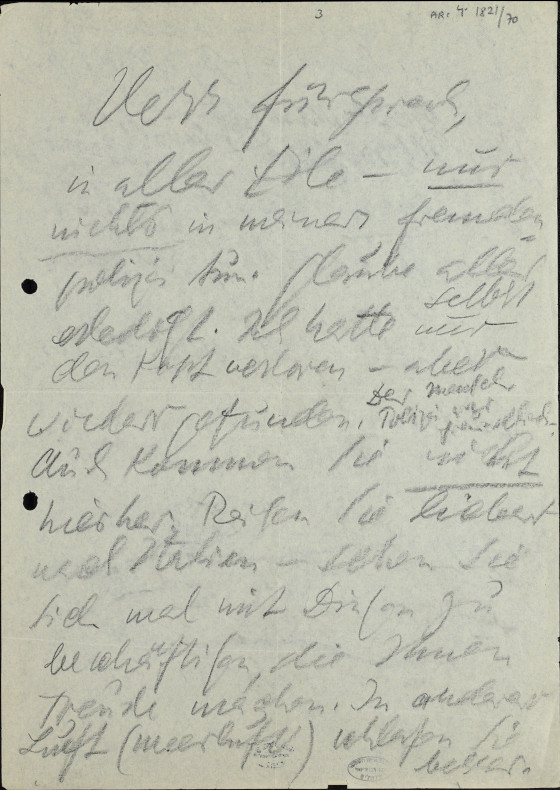 3
AR: T 1821/70
Herr Fürsprech,
in aller Eile – nur
nichts in meiner fremden=
polizei tun. Glaube alles
erledigt. Ich hatte nur selbst
den Kopf verloren – aber
wieder gefunden. Der Mensch
Polizei
Auch kommen Sie nicht
hierher. Reisen Sie lieber
nach Italien – sehen Sie
sich mal mit Dingen zu
beschäftigen, die Ihnen
Freude machen. In anderer
Luft (Meerluft) schlafen Sie
besser.